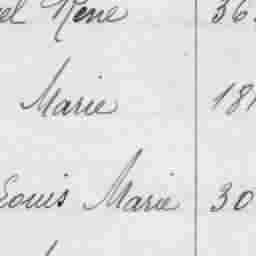 René 36
Marie 18
Louis Marie 30